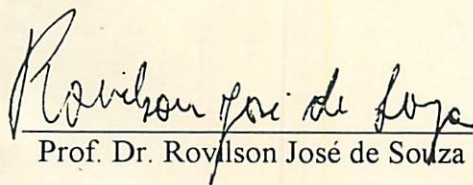 Rovilson José de Souza
Prof. Dr. Rovilson José de Souza